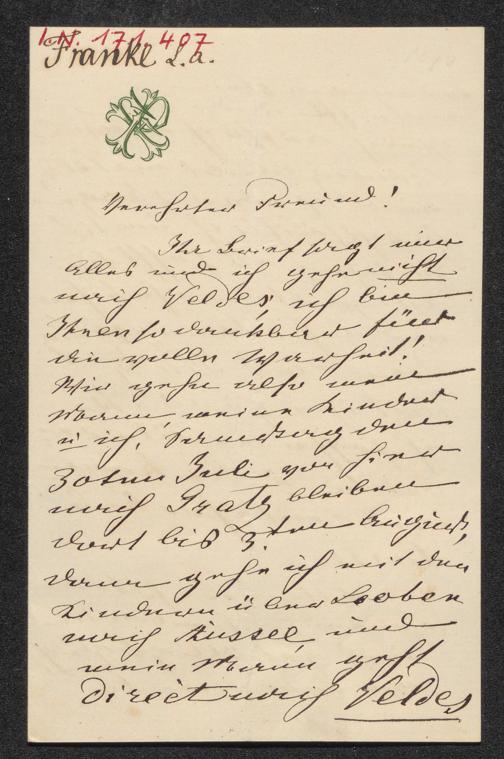 I.N. 171.407
Frankl L.A.
Verehrter Freund!
Ihr Brief sagt mir
Alles und ich gehe nicht
nach Veldes, ich bin
Ihnen so dankbar für
die volle Warheit!
Wir gehn also mein
Mann meine Kinder
u ich, Samstag den
30ten Juli von hier
nach Gratz bleiben
dort bis 3ten August,
dann gehe ich mit den
Kindern über Leoben
nach Aussee und
mein Mann geht
direct nach Veldes